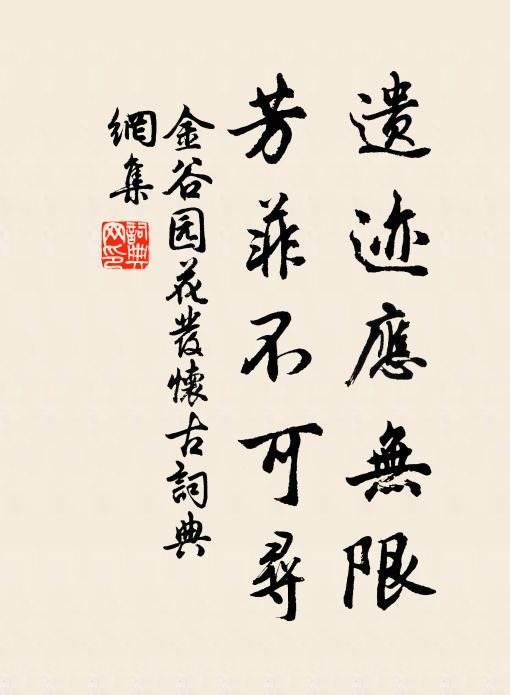 遗迹應無限
芳菲不可尋
金谷园花發懷古詞典
網集
詞典
网印